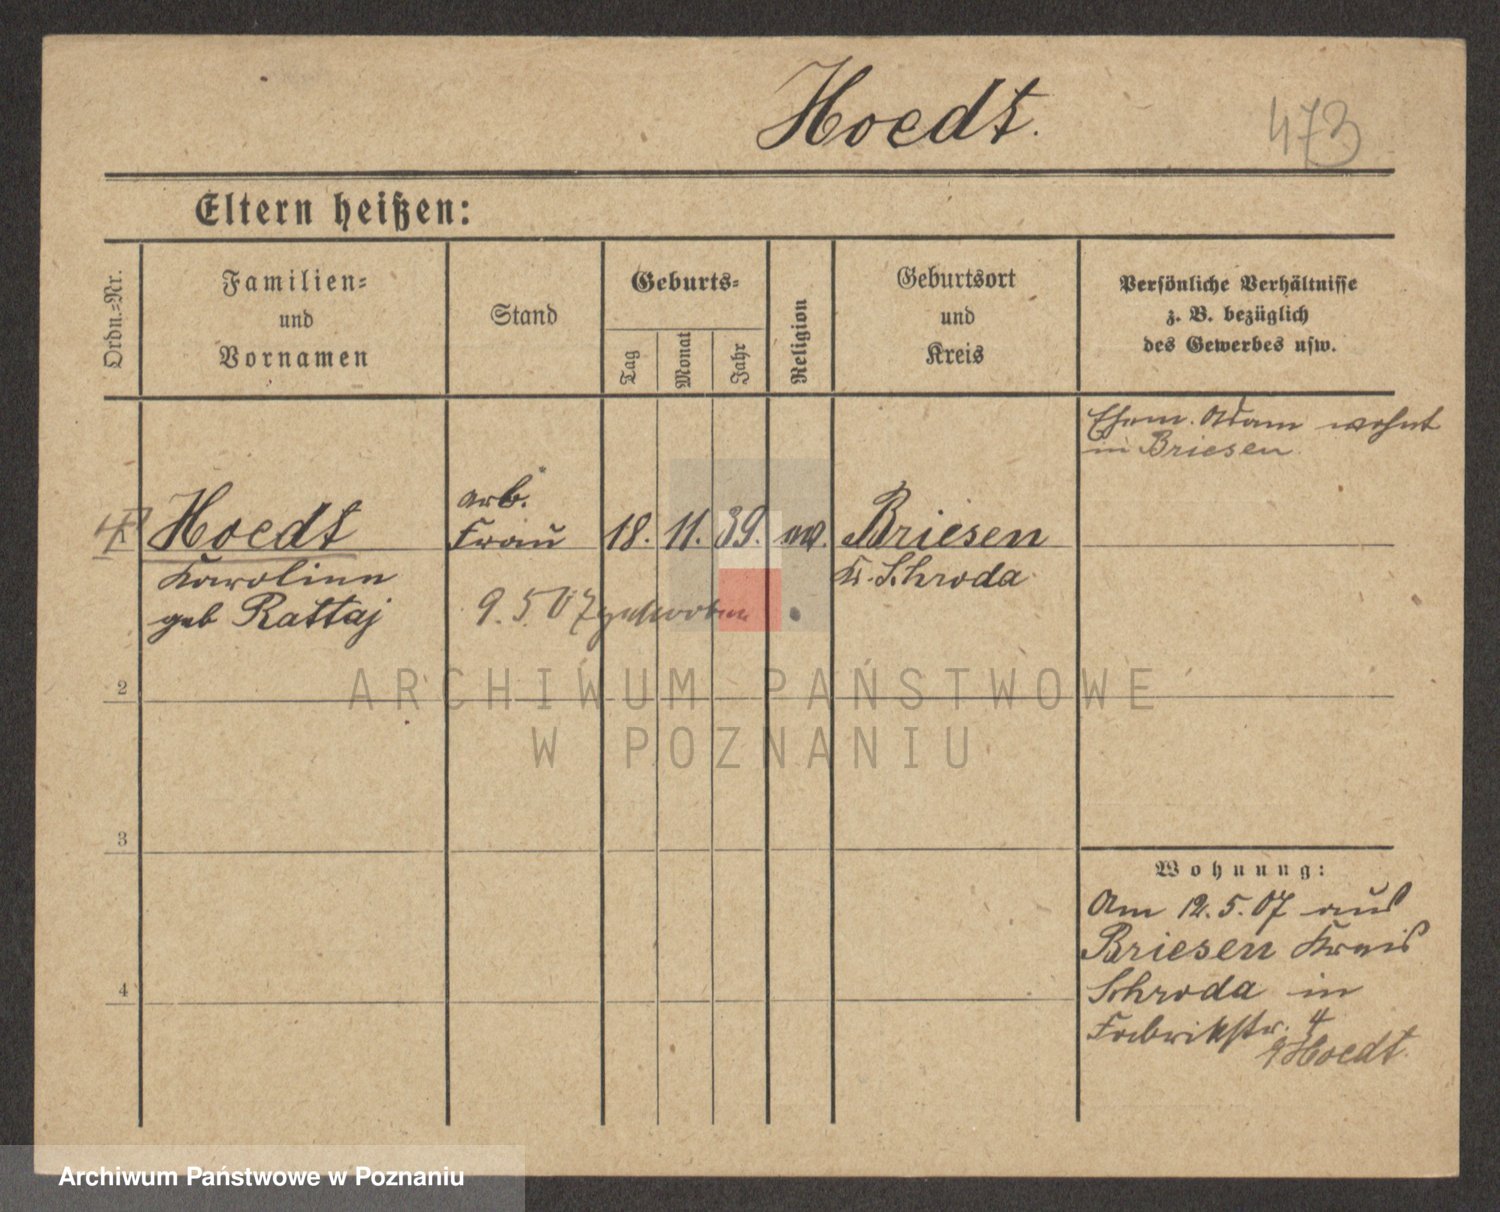 Hoedt.
473
Eltern heißen:
Ordn.-Nr.
Familien-
und
Vornamen
Stand
Geburts-
Tag
Monat
Jahr
Religion
Geburtsort
und
Kreis
Persönliche Verhältnisse
z. B. bezüglich
des Gewerbes usw.
Ehem. Adam wohnt
in Briesen
Hoedt
Karoline
geb Rattaj
arb.
Frau
18. 11. 39.
Briesen
Kr. Schroda
9. 5. 07 gestorben
2
3
4
Wohnung:
Am 12. 5. 07 aus
Briesen Kreis
Schroda in
Fabrikstr. 4
Hoedt.
ARCHIWUM PAŃSTWOWE
W POZNANIU
Archiwum Państwowe w Poznaniu